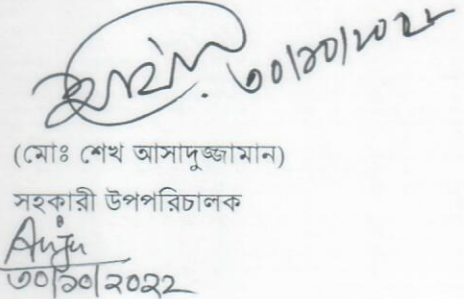 ৩০/১০/২০২২
(মোঃ শেখ আসাদুজ্জামান)
সহকারী উপপরিচালক
Anju
৩০/১০/২০২২